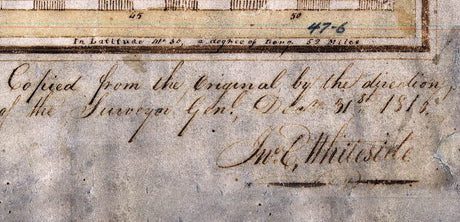 45 50
47-6
In Latitude 41° 30, a degree of Long. 52 Miles
Copied from the Original by the direction,
of the Surveyor Genl, Decr. 31st 1815.
Jno. C. Whiteside